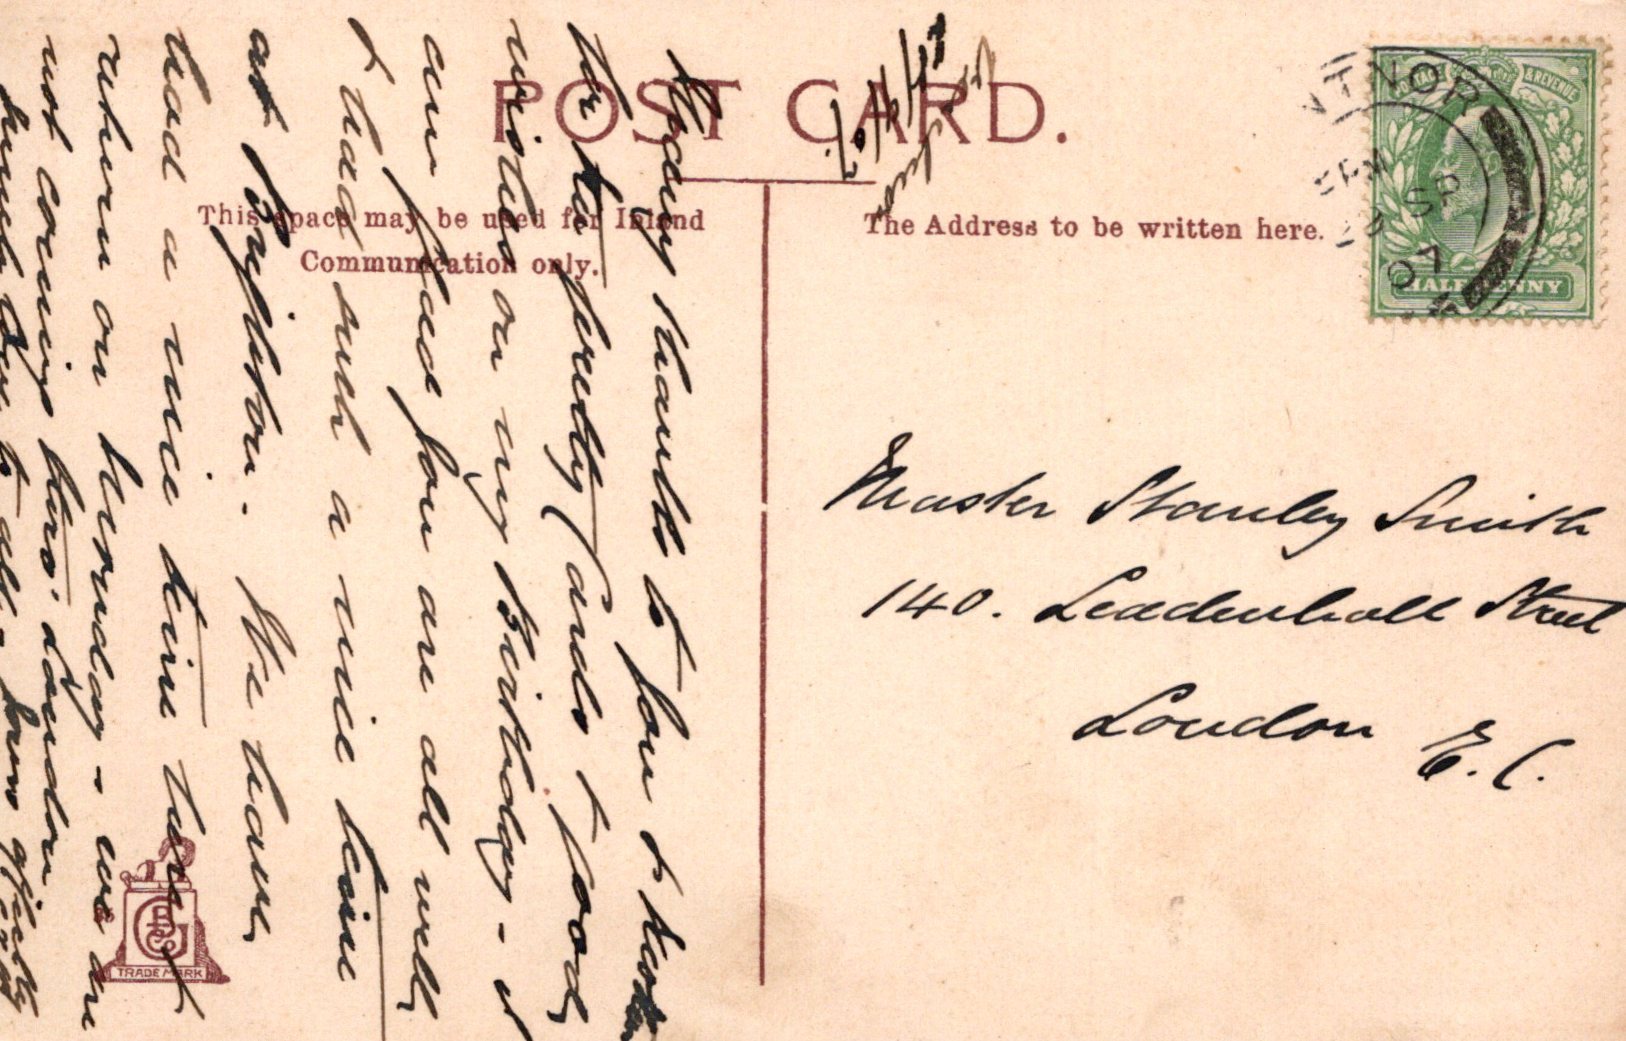 POST CARD.
This space may be used for Inland
Communication only.
The Address to be written here.
POSTAGE & REVENUE
HALFPENNY
NTNOR
SP
07
TRADE MARK
Master Stanley Smith
140. Leadenhall Street
London E.C.
Many thanks to you &
for the pretty cards & good
wishes on my Birthday -
am glad you are all well
& had such a nice time
at Brighton. We have
had a nice time here &
return on Monday - we are
not coming thro' London
love